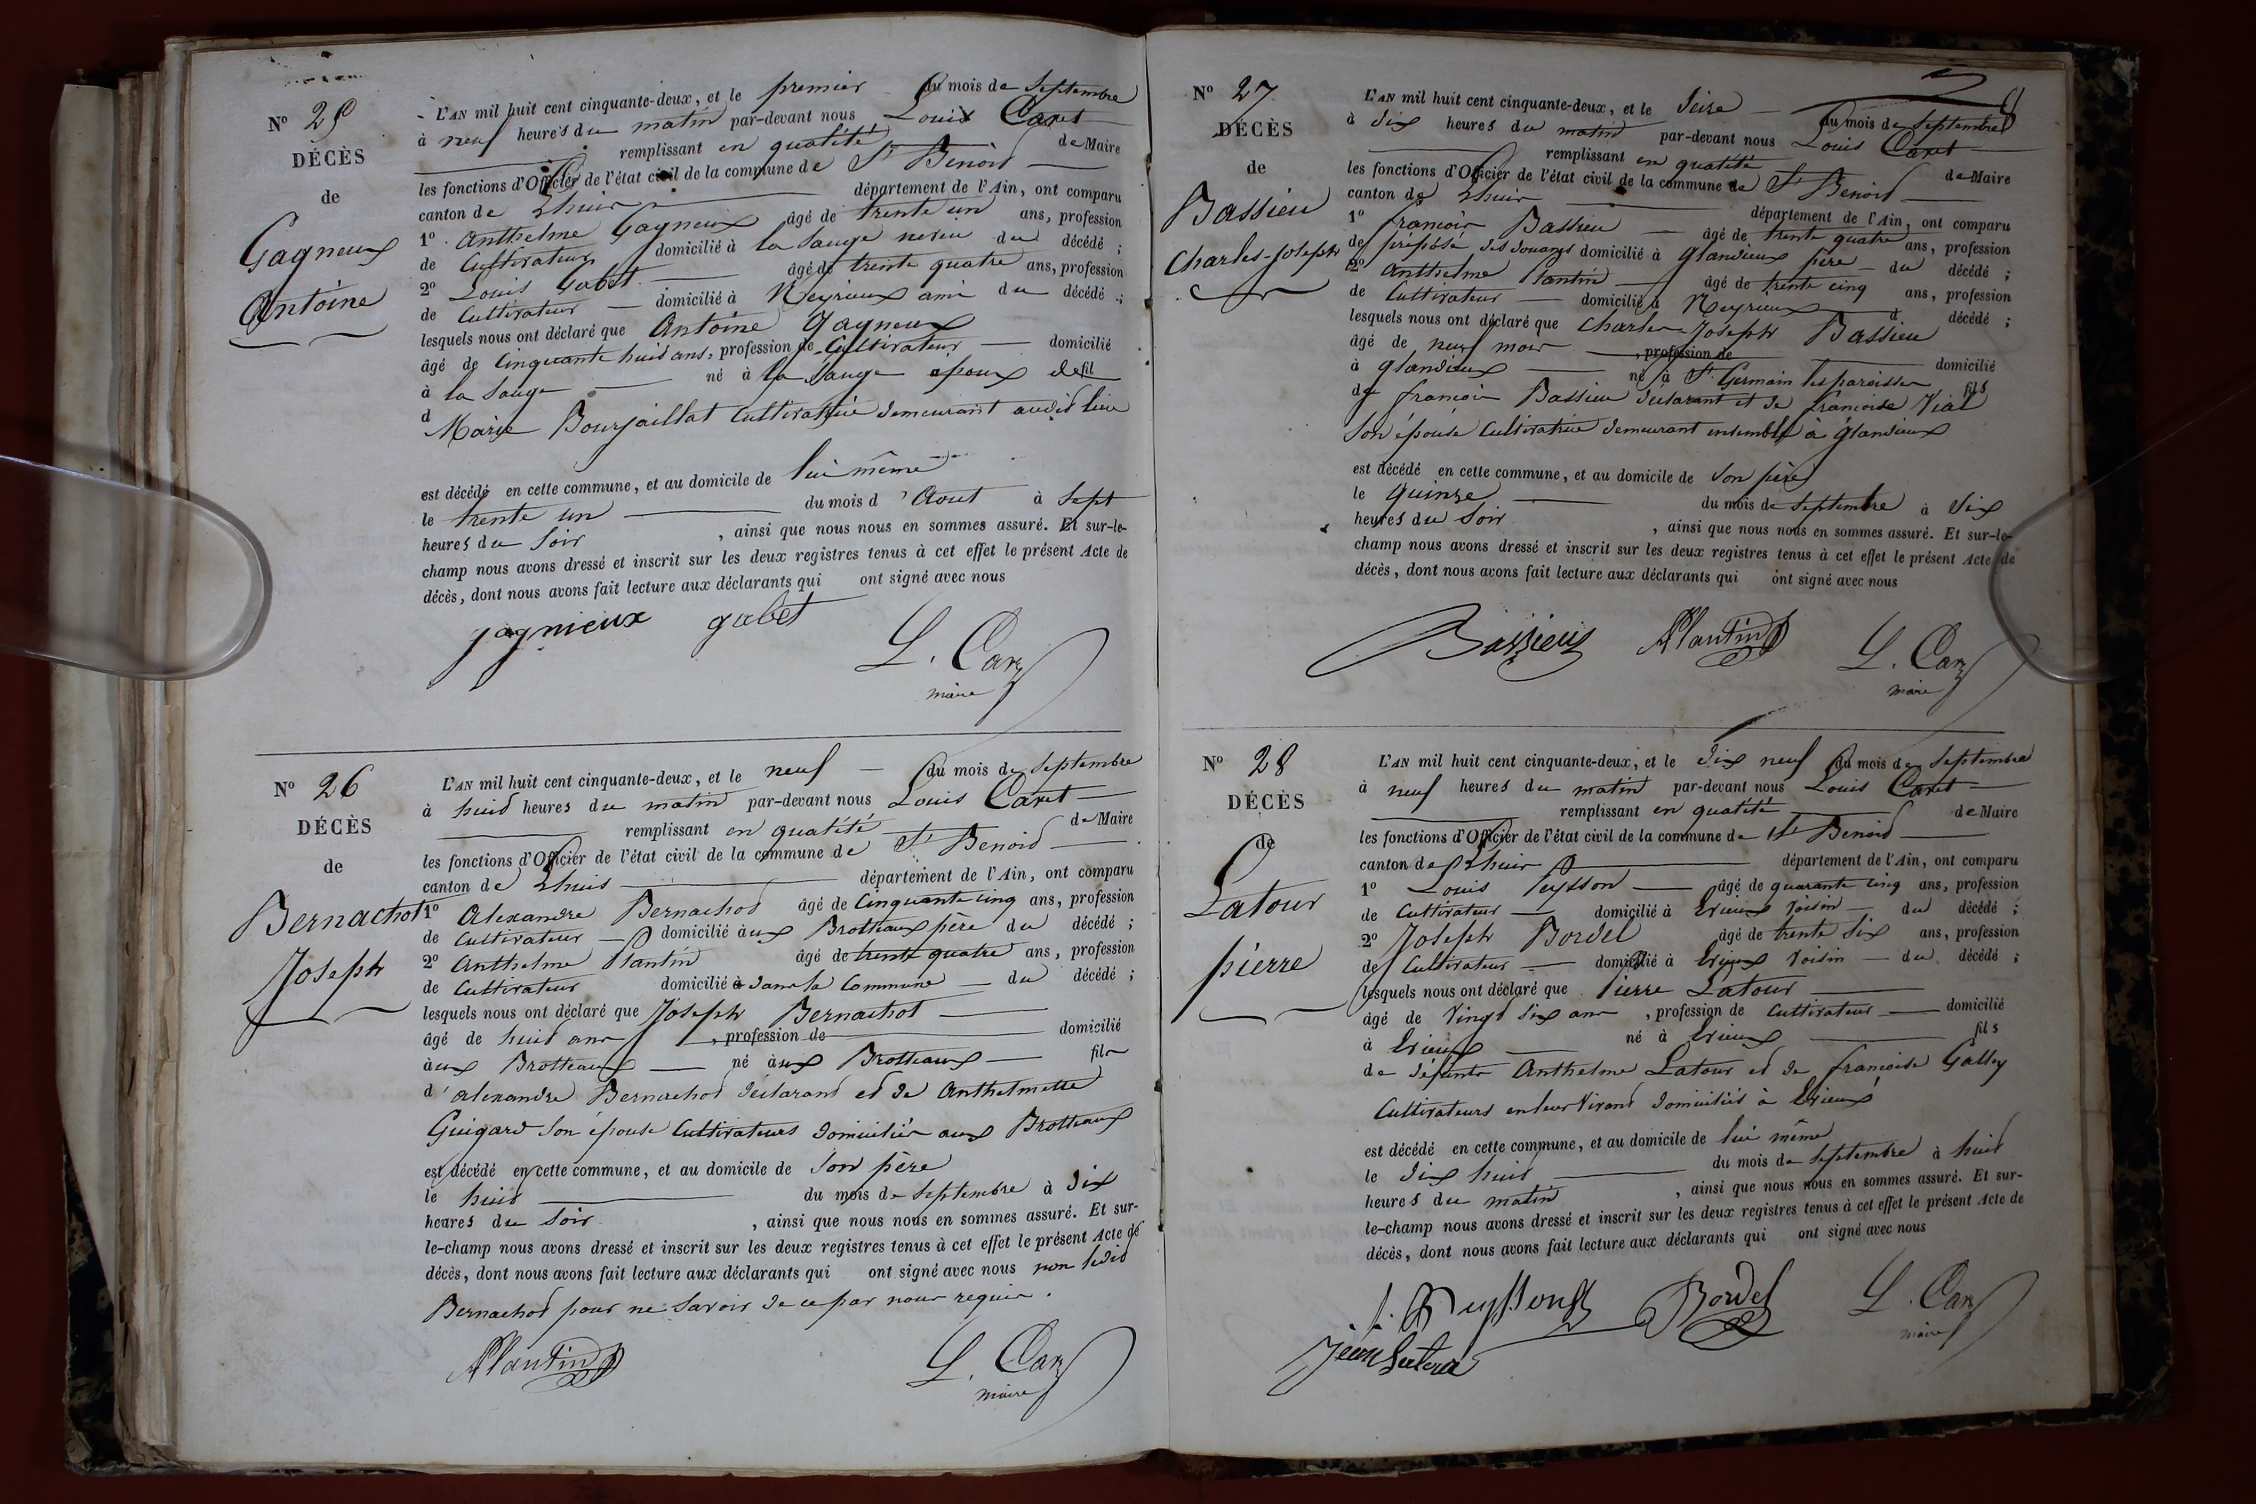 N° 25
DÉCÈS
de
Gagneux
Antoine
L'AN mil huit cent cinquante-deux, et le premier du mois de Septembre
à neuf heures du matin par-devant nous Louis Caret
remplissant en qualité de Maire
les fonctions d'Officier de l'état civil de la commune de St Benoid
canton de Lhuis département de l'Ain, ont comparu
1° Anthelme Gagneux âgé de trente un ans, profession
de Cultivateur domicilié à la Sauge neveu du décédé ;
2° Louis Gabet âgé de trente quatre ans, profession
de Cultivateur domicilié à Neyrieux ami du décédé ;
lesquels nous ont déclaré que Antoine Gagneux
âgé de Cinquante huit ans, profession de Cultivateur domicilié
à la Sauge né à la Sauge époux de fil
d Marie Bourjaillat Cultivatrice demeurant audit lieu
est décédé en cette commune, et au domicile de lui même
le trente un du mois d'Aout à Sept
heures du Soir, ainsi que nous nous en sommes assuré. Et sur-le-
champ nous avons dressé et inscrit sur les deux registres tenus à cet effet le présent Acte de
décès, dont nous avons fait lecture aux déclarants qui ont signé avec nous
gagnieux gabet L. Caret
maire
N° 26
DÉCÈS
de
Bernachot
Joseph
L'AN mil huit cent cinquante-deux, et le neuf du mois de Septembre
à huid heures du matin par-devant nous Louis Caret
remplissant en qualité de Maire
les fonctions d'Officier de l'état civil de la commune de St Benoid
canton de Lhuis département de l'Ain, ont comparu
1° Alexandre Bernachod âgé de Cinquante cinq ans, profession
de Cultivateur domicilié aux Brotteaux père du décédé ;
2° Anthelme Plantin âgé de trente quatre ans, profession
de Cultivateur domicilié dans la Commune du décédé ;
lesquels nous ont déclaré que Joseph Bernachot
âgé de huid ans, profession de domicilié
aux Brotteaux né aux Brotteaux fils
d'Alexandre Bernachod déclarand ed de Anthelmette
Guigard son épouse Cultivateurs domiciliés aux Brotteaux
est décédé en cette commune, et au domicile de Son père
le huid du mois de Septembre à Dix
heures du Soir, ainsi que nous nous en sommes assuré. Et sur-
le-champ nous avons dressé et inscrit sur les deux registres tenus à cet effet le présent Acte de
décès, dont nous avons fait lecture aux déclarants qui ont signé avec nous non ledid
Bernachod pour ne savoir de ce par nous requis.
APlantin L. Caret
maire
N° 27
DÉCÈS
de
Bassieu
Charles-Joseph
L'AN mil huit cent cinquante-deux, et le Seize du mois de Septembre
à Dix heures du matin par-devant nous Louis Caret
remplissant en qualité de Maire
les fonctions d'Officier de l'état civil de la commune de St Benoid
canton de Lhuis département de l'Ain, ont comparu
1° françois Bassieu âgé de trente quatre ans, profession
de préposé des douanes domicilié à Glandieux père du décédé ;
2° Anthelme Plantin âgé de trente cinq ans, profession
de Cultivateur domicilié à Neyrieux d décédé ;
lesquels nous ont déclaré que Charles-Joseph Bassieu
âgé de neuf mois, profession de domicilié
à Glandieux né à St Germain les paroisses fils
de françois Bassieu déclarant et de françoise Vial
Son épouse Cultivatrice demeurant ensemble à Glandieux
est décédé en cette commune, et au domicile de Son père
le quinze du mois de Septembre à Dix
heures du Soir, ainsi que nous nous en sommes assuré. Et sur-le-
champ nous avons dressé et inscrit sur les deux registres tenus à cet effet le présent Acte de
décès, dont nous avons fait lecture aux déclarants qui ont signé avec nous
Bassieu APlantin L. Caret
maire
N° 28
DÉCÈS
de
Latour
pierre
L'AN mil huit cent cinquante-deux, et le Dix neuf du mois de Septembre
à neuf heures du matin par-devant nous Louis Caret
remplissant en qualité de Maire
les fonctions d'Officier de l'état civil de la commune de St Benoid
canton de Lhuis département de l'Ain, ont comparu
1° Louis Peysson âgé de quarante cinq ans, profession
de Cultivateur domicilié à Evieux voisin du décédé ;
2° Joseph Bordel âgé de trente Six ans, profession
de Cultivateur domicilié à Evieux voisin du décédé ;
lesquels nous ont déclaré que Pierre Latour
âgé de Vingt Six ans, profession de Cultivateur domicilié
à Evieux né à Evieux fils
de défunts Anthelme Latour ed de françoise Gallay
Cultivateurs en leur vivand domiciliés à Evieux
est décédé en cette commune, et au domicile de lui même
le Dix huid du mois de Septembre à huid
heures du matin, ainsi que nous nous en sommes assuré. Et sur-
le-champ nous avons dressé et inscrit sur les deux registres tenus à cet effet le présent Acte de
décès, dont nous avons fait lecture aux déclarants qui ont signé avec nous
Peysson Bordel L. Caret
maire